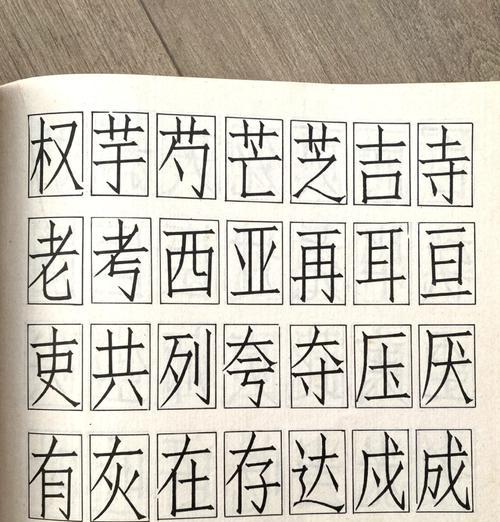 权芋芍芒芝吉寺
老考西亚再耳亘
吏共列夸夺压厌
有灰在存达成成